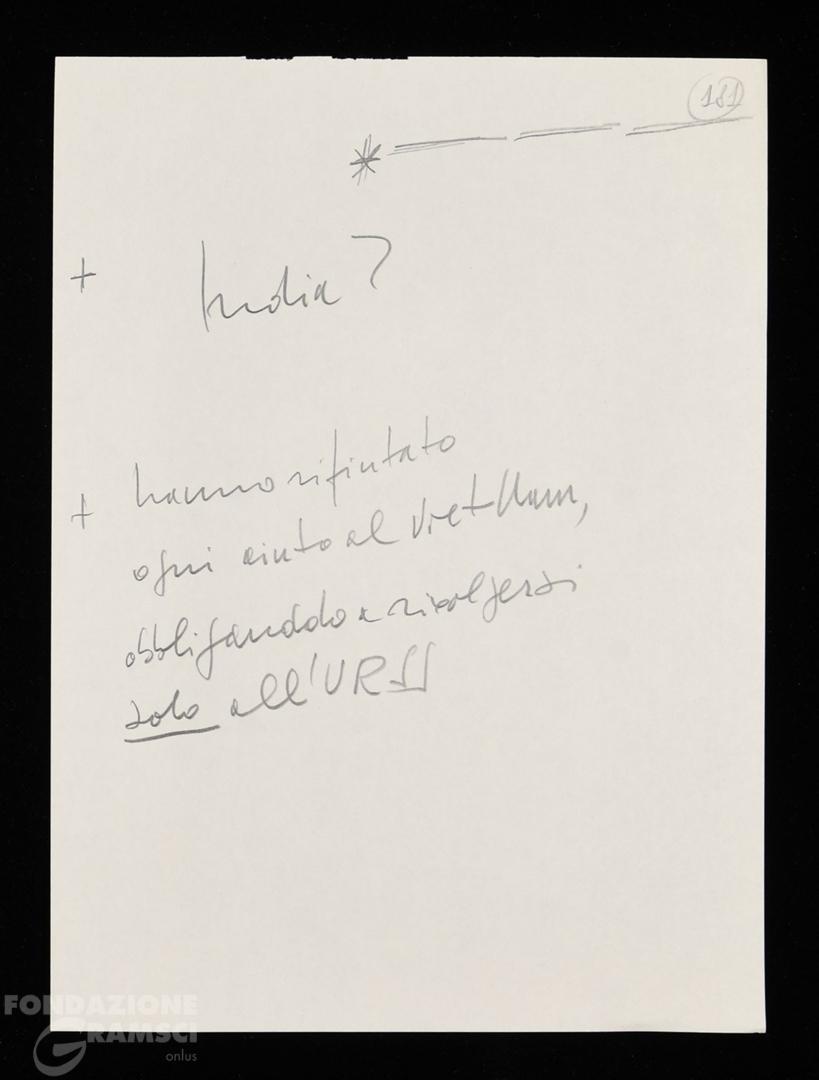 181
*
+ India?
+ hanno rifiutato
ogni aiuto al Viet-Nam,
obbligandolo a rivolgersi
solo all'URSS
FONDAZIONE
GRAMSCI
onlus